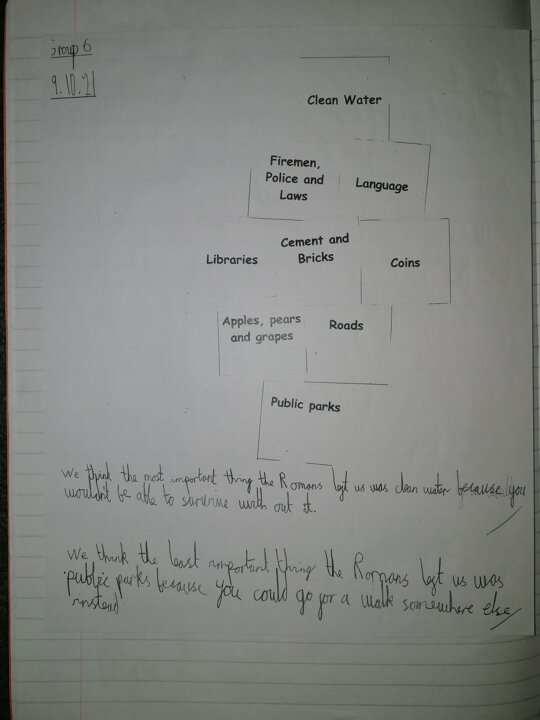 Group 6
9.10.21
Clean Water
Firemen,
Police and
Laws
Language
Libraries
Cement and
Bricks
Coins
Apples, pears
and grapes
Roads
Public parks
We think the most important thing the Romans left us was clean water because you
wouldn't be able to survive with out it.
We think the least important thing the Romans left us was
public parks because you could go for a walk somewhere else
instead